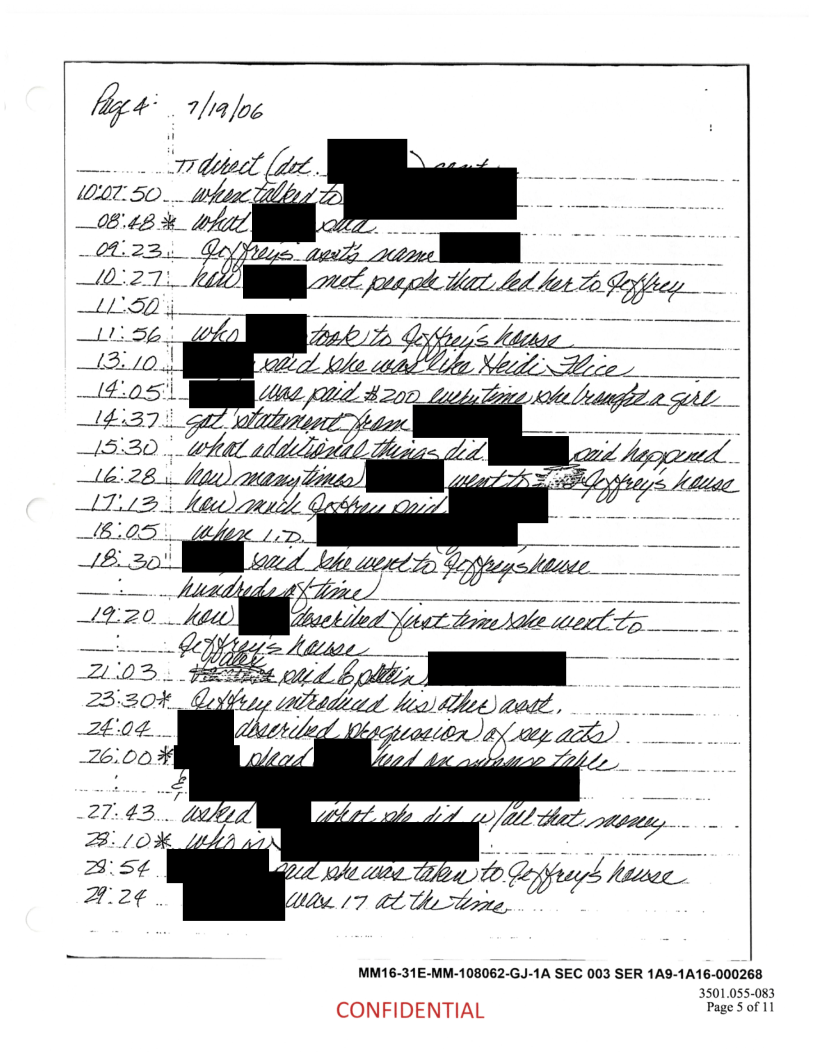 Page 4: 7/19/06
direct (det.
10:07:50 when talked to
08:48 * what said
09:23 Jeffrey's asst's name
10:27 how met people that led her to Jeffrey
11:50
11:56 who took to Jeffrey's house
13:10 said she was like Heidi Flice
14:05 was paid $200 everytime she brought a girl
14:37 got statement from
15:30 what additional things did said happened
16:28 how many times went to Jeffrey's house
17:13 how much Jeffrey paid
18:05 when I.D.
18:30 said she went to Jeffrey's house
hundreds of time
19:20 how described first time she went to
Jeffrey's house
21:03 paid Epstein
23:30* Jeffrey introduced his other asst.
24:04 described progression of sex acts
26:00* placed head on massage table
&
27:43 asked what she did w/all that money
28:10* who is
28:54 said she was taken to Jeffrey's house
29:24 was 17 at the time
MM16-31E-MM-108062-GJ-1A SEC 003 SER 1A9-1A16-000268
3501.055-083
Page 5 of 11
CONFIDENTIAL